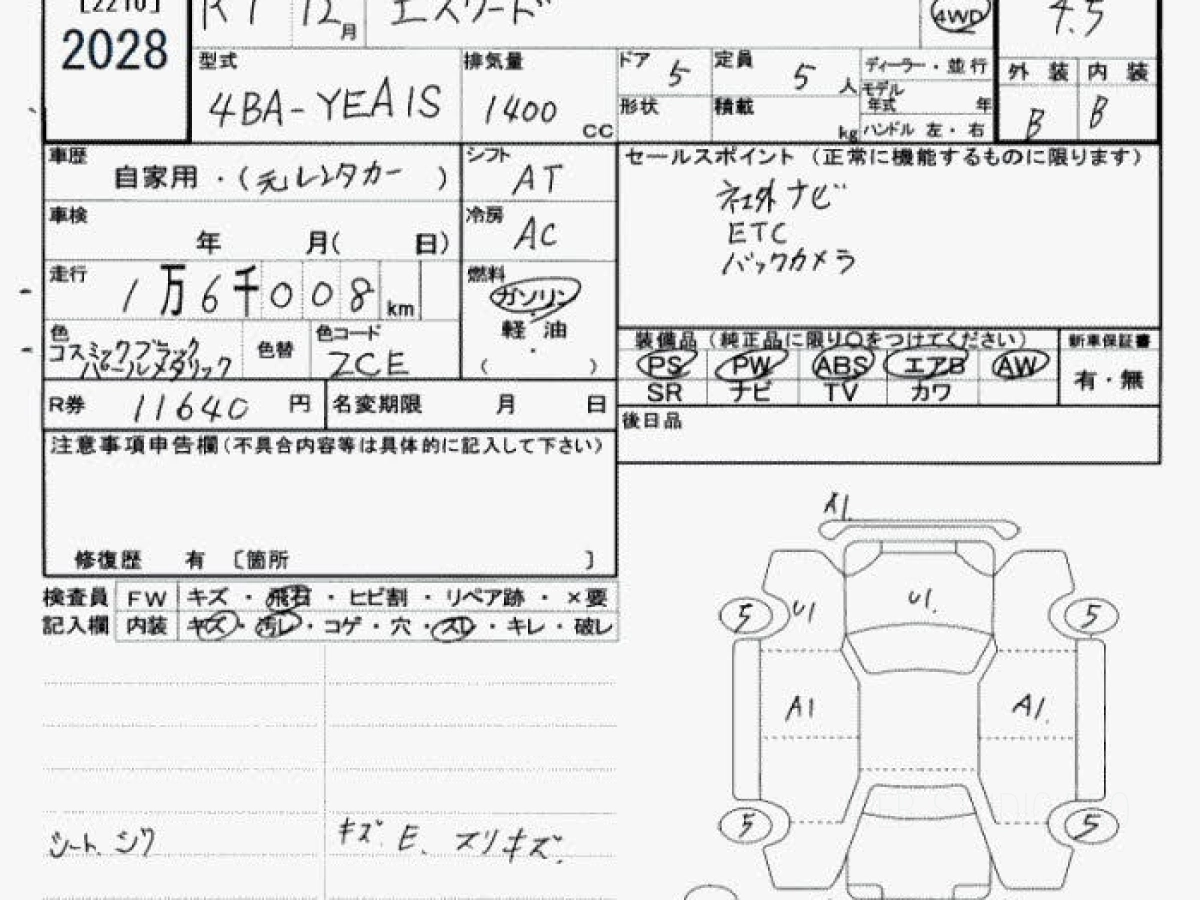 [2210] R1 12月 エスクード 4WD 4.5
2028
型式 排気量 ドア 5 定員 5人 ディーラー・並行 外装 内装
4BA-YEA1S 1400 CC 形状 積載 kg モデル年式 年 B B
ハンドル 左・右
車歴 シフト セールスポイント (正常に機能するものに限ります)
自家用・(元レンタカー) AT 社外ナビ
車検 冷房 ETC
年 月( 日) AC バックカメラ
走行 燃料
1万6千008km ガソリン
色 色替 色コード 軽油 装備品 (純正品に限り○をつけてください) 新車保証書
コスミックブラック ( ・ ) PS PW ABS エアB AW 有・無
パールメタリック ZCE SR ナビ TV カワ
R券 11640 円 名変期限 月 日 後日品
注意事項申告欄(不具合内容等は具体的に記入して下さい)
修復歴 有 〔箇所 ]
検査員 FW キズ・飛石・ヒビ割・リペア跡・×要
記入欄 内装 キズ・汚レ・コゲ・穴・スレ・キレ・破レ
A1.
5 U1 U1. 5
A1 A1.
シート、シワ キズ、E、スリキズ. 5 5